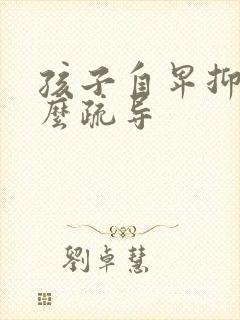 孩子自卑抑
麼疏导
劉卓慧